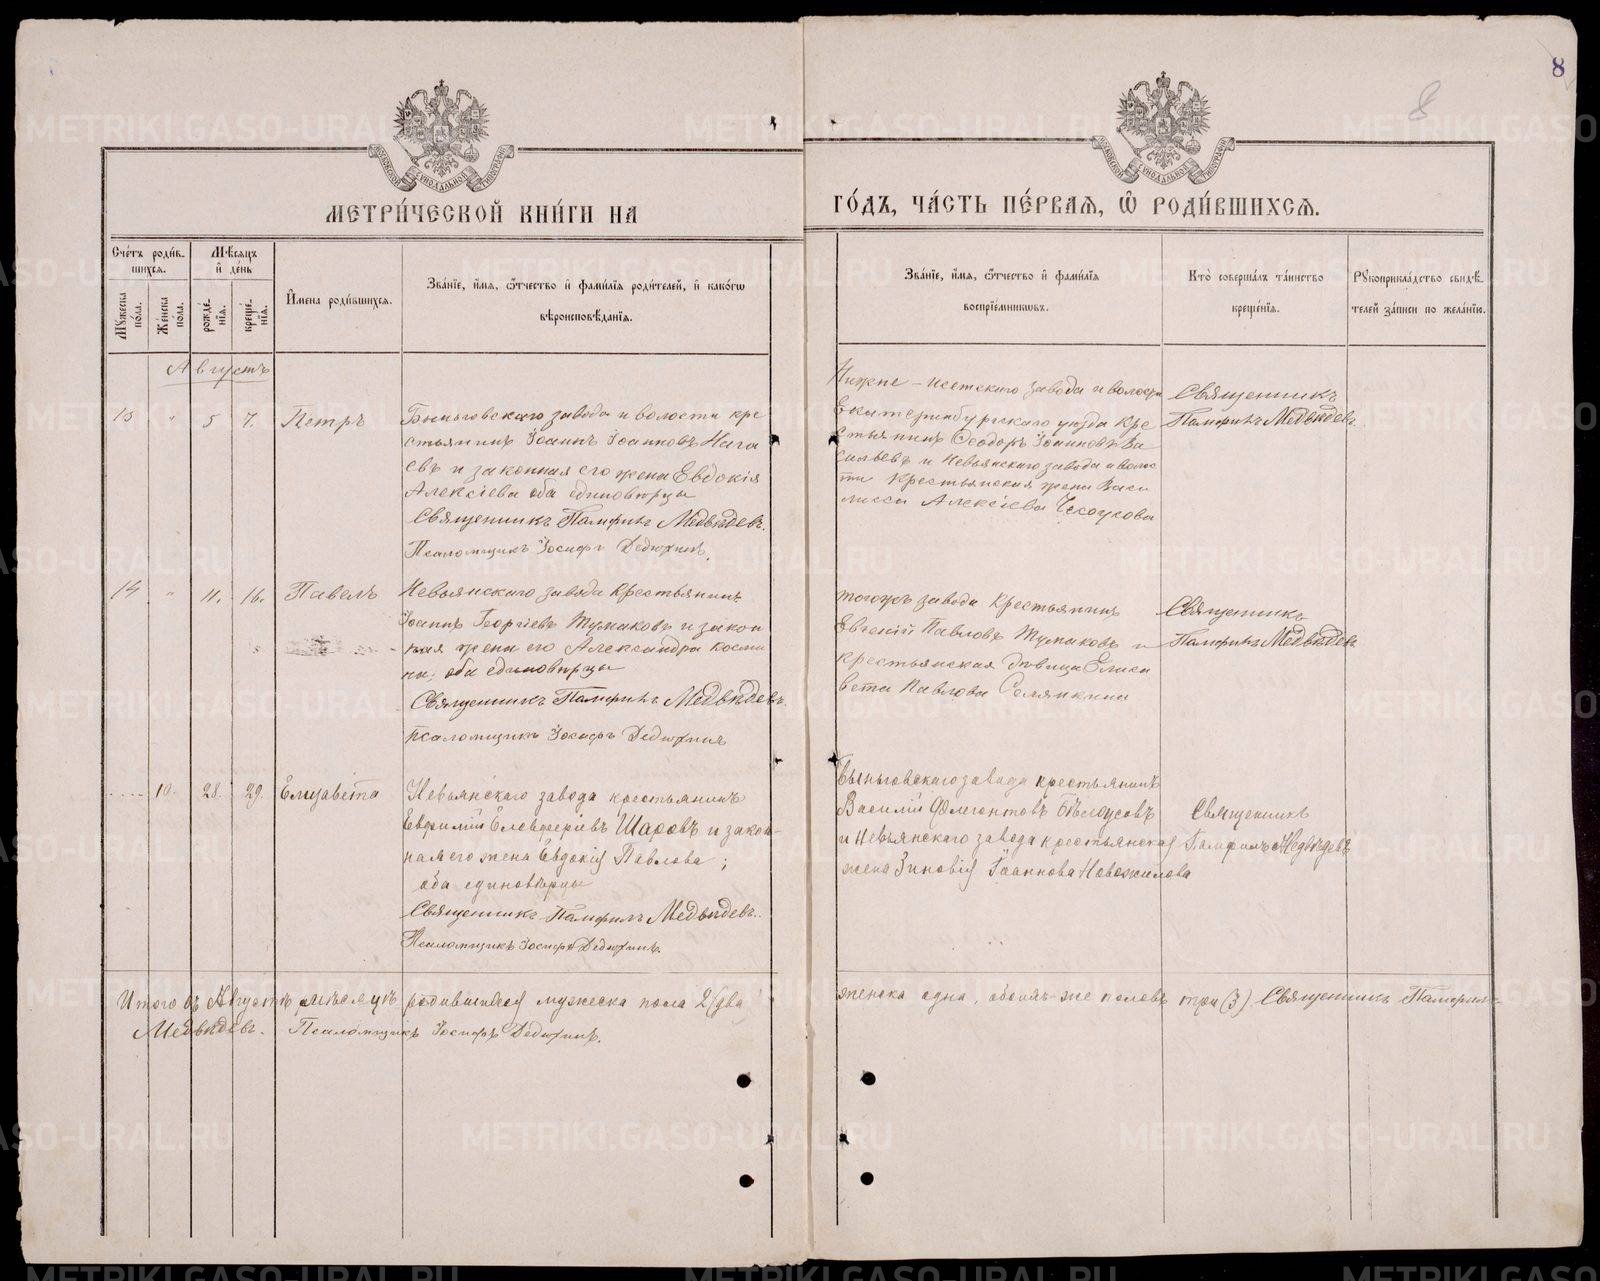 8
8
МЕТРИ́ЧЕСКОЙ КНИ́ГИ НА
ГО́ДЪ, ЧА́СТЬ ПЕ́РВАЯ, Ѽ РОДИ́ВШИХСЯ.
Сче́тъ роди́в-
шихся.
Мѣ́сяцъ
и҆ де́нь
Мꙋ́жеска по́ла.
Же́нска по́ла.
рожде́-
нїя.
креще́-
нїя.
И҆мена̀ роди́вшихся.
Зва́нїе, и҆́мя, ѻ҆́тчество и҆ фами́лїя роди́телей, и҆ како́гѡ
вѣроисповѣ́данїя.
Зва́нїе, и҆́мя, ѻ҆́тчество и҆ фами́лїя
воспрїе́мникѡвъ.
Кто̀ соверша́лъ та́инство
креще́нїя.
Рꙋкоприкла́дство свидѣ́-
телей за́писи по жела́нїю.
Августъ
13 " 5 7. Петръ
Быньговскаго завода и волости кре
стьянинъ Іоаннъ Іоанновъ Нага
евъ и законная его жена Евдокія
Алексіева оба единовѣрцы
Священникъ Памфилъ Медвѣдевъ.
Псаломщикъ Іосифъ Дедюхинъ.
Нижне-Исетскаго завода и волости
Екатеринбургскаго уѣзда кре
стьянинъ Ѳеодоръ Іоанновъ Ва
сильевъ и Невьянскаго завода и волос
ти крестьянская жена Васи
лисса Алексіева
Священникъ
Памфилъ Медвѣдевъ.
14 " 11. 16. Павелъ
Невьянскаго завода крестьянинъ
Іоаннъ Георгіевъ Тумаковъ и закон
ная жена его Александра Косми
на, оба единовѣрцы
Священникъ Памфилъ Медвѣдевъ.
Псаломщикъ Іосифъ Дедюхинъ
тогожъ завода крестьянинъ
Евгеній Павловъ Тумаковъ и
крестьянская дѣвица Елиса
вета Павлова Селянкина
Священникъ
Памфилъ Медвѣдевъ
10. 28. 29. Елизавета
Невьянскаго завода крестьянинъ
Евфимій Елевферіевъ Шаровъ и закон-
ная его жена Евдокія Павлова;
оба единовѣрцы
Священникъ Памфилъ Медвѣдевъ.
Псаломщикъ Іосифъ Дедюхинъ.
Быньговскаго завода крестьянинъ
Василій Флегонтовъ Бѣлоусовъ
и Невьянскаго завода крестьянская
жена Зиновія Іоаннова Новожилова
Священникъ
Памфилъ Медвѣдевъ
Итого въ Августѣ мѣсяцѣ родившихся мужеска пола 2 (два)
женска одна, обоихъ же половъ три (3). Священникъ Памфилъ
Медвѣдевъ. Псаломщикъ Іосифъ Дедюхинъ.